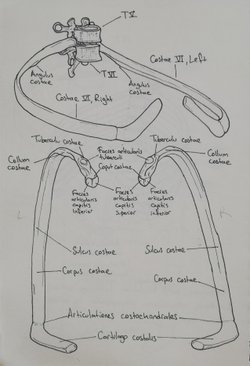 T V
Costae VI, Left
T VI
Angulus
costae
Angulus
costae
Costae VI, Right
Tuberculu costae
Tuberculu costae
Collum
costae
Facies articularis
tuberculi
Caput costae
Collum
costae
Facies
articularis
capitis
inferior
Facies
articularis
capitis
superior
Facies
articularis
capitis
inferior
Sulcus costae
Sulcus costae
Corpus costae
Corpus costae
Articulationes costochondrales
Cartilago costalis